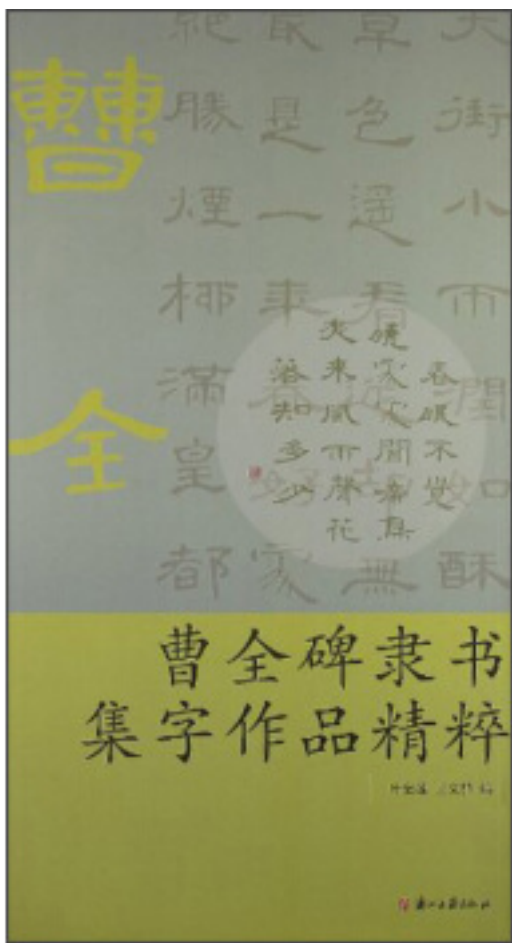 曹全
天街小雨潤如酥
草色遥看近却無
最是一年春好處
絕勝煙柳滿皇都
春眠不覺
曉處處聞啼鳥
夜來風雨聲花
落知多少
曹全碑隶书
集字作品精粹
浙江古籍出版社